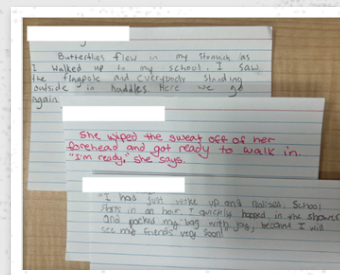 Butterflies flew in my stomach as
I walked up to my school. I saw
the flagpole and everybody standing
outside in huddles. Here we go
again.
She wiped the sweat off of her
forehead and got ready to walk in.
"I'm ready," she says.
"I had just woke up and realised. School
starts in an hour. I quickly hopped in the shower
and packed my bag with joy, because I will
see my friends very soon!